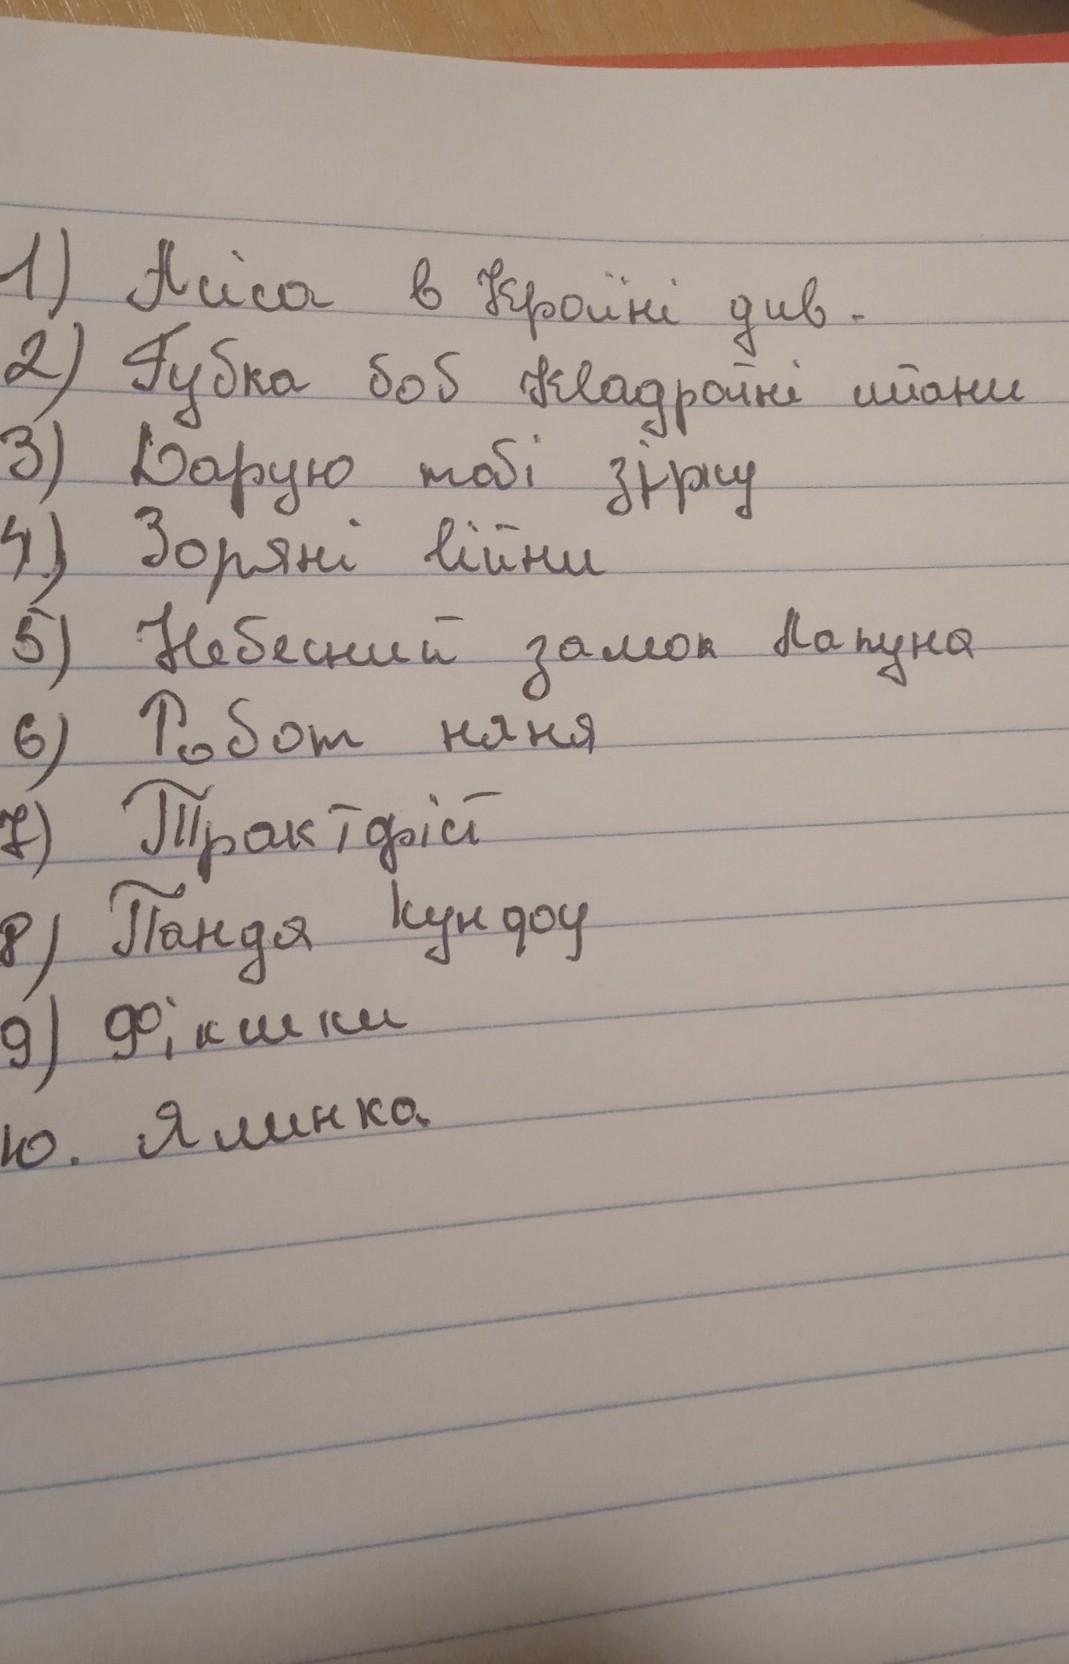 1) Аліса в Країні див.
2) Губка боб Квадратні штани
3) Дарую тобі зірку
4) Зоряні війни
5) Небесний замок Лапута
6) Робот няня
7)
8) Панда Кунфу
9) Фіксики
10. Ялинка